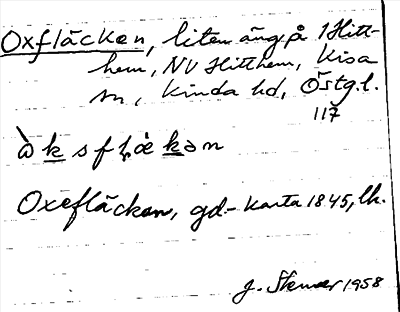 Oxfläcken, liten äng på 1 Hitt-
hem, NV Hitthem, Kisa
sn, Kinda hd, Östg.l.
117
òksflækən
Oxefläcken, gd-karta 1845, lk.
J. 1958